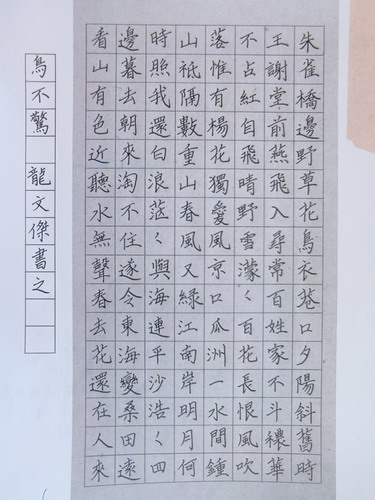 朱雀橋邊野草花鳥衣巷口夕陽斜舊時
王謝堂前燕飛入尋常百姓家不斗穠華
不占紅自飛晴野雪濛〱百花長恨風吹
落惟有楊花獨愛風京口瓜洲一水間鍾
山祗隔數重山春風又綠江南岸明月何
時照我還白浪茫〱與海連平沙浩〱四
邊暮去朝來淘不住遂令東海變桑田遠
看山有色近聽水無聲春去花還在人來
鳥不驚 龍文傑書之